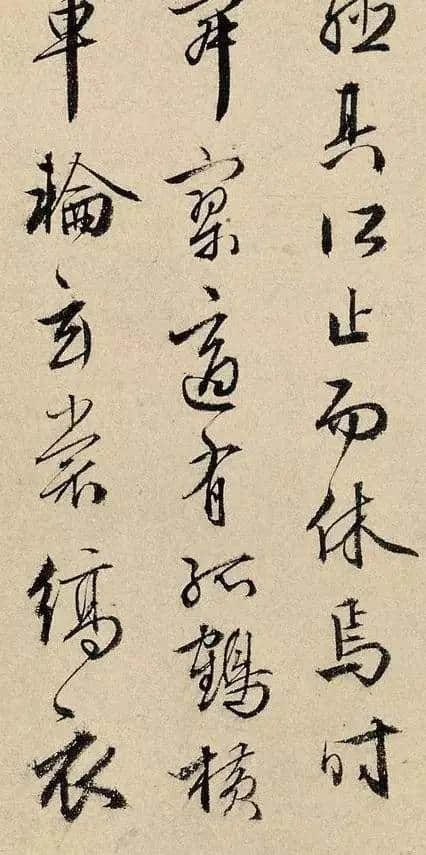 其所止而休焉时
寥適有孤鶴横
車輪玄裳縞衣